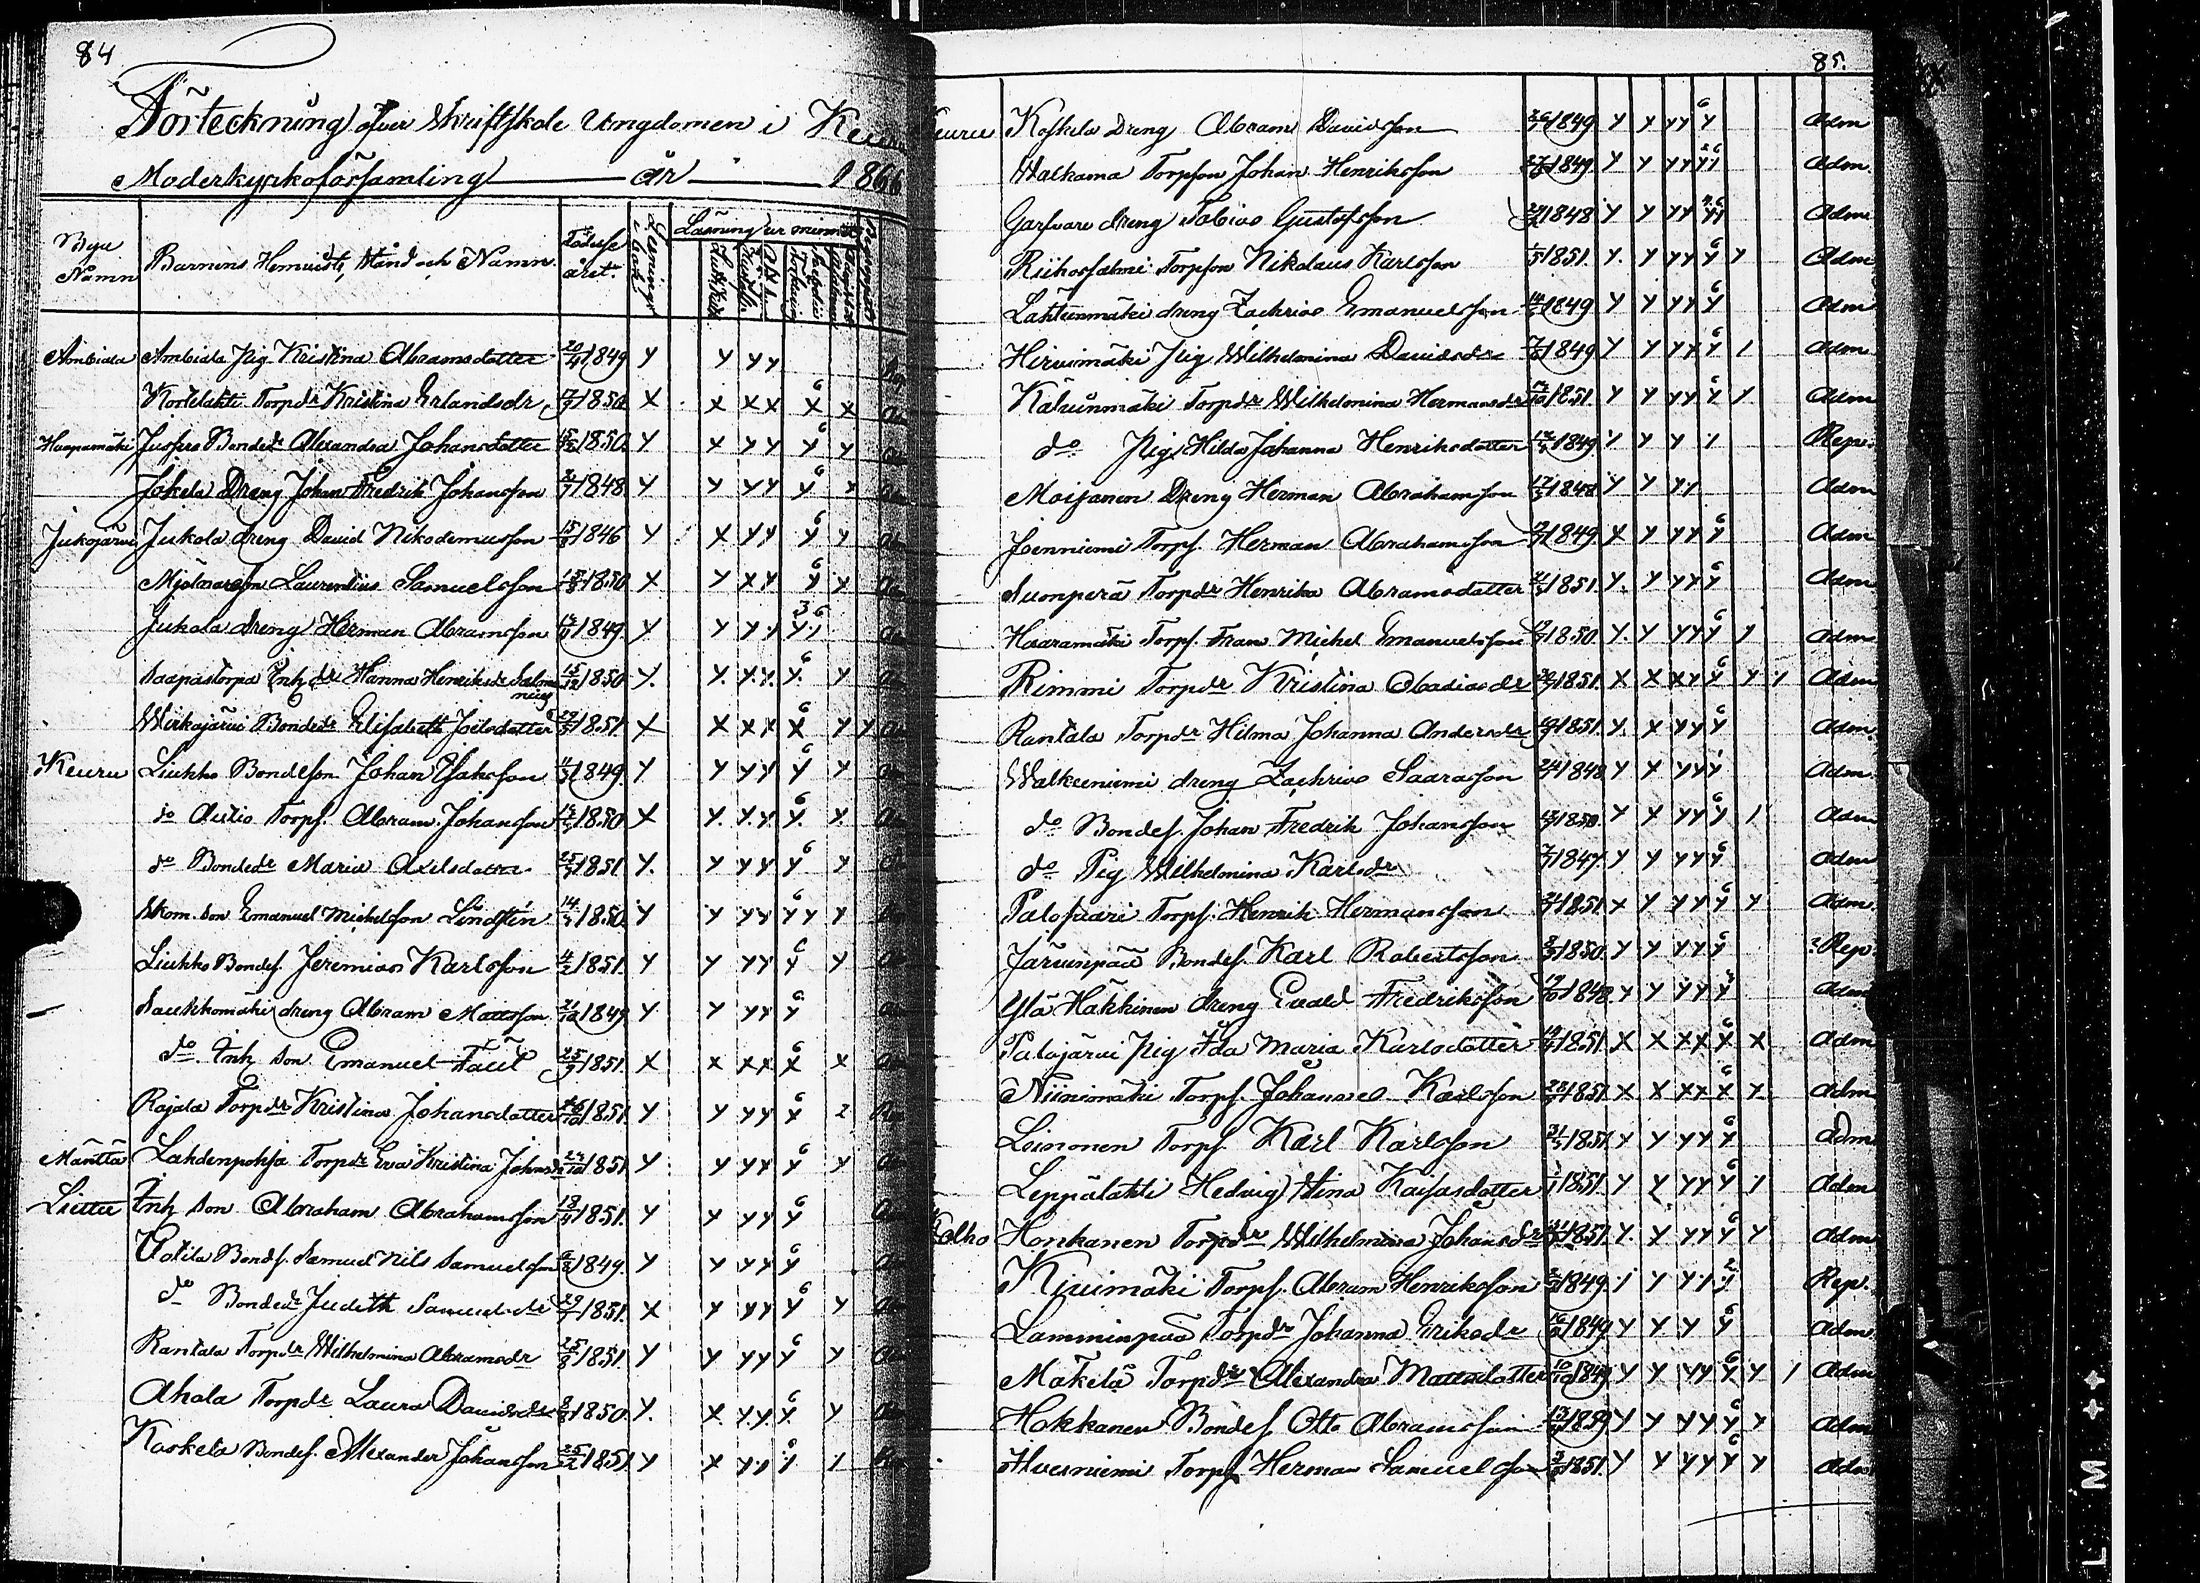 84
Förteckning öfver Skriftskole Ungdomen i Keuru
Moderkyrkoförsamling år 1866
Byns Namn Barnens Hemvist, Stånd och Namn Födelse året. Läsning i bok Läsning ur minnet
Ambiala Ambiala Pig. Kristina Abramsdotter 20/4 1849 y y y y
Kortelahti Torpdr Kristina Erlandsdr 1850 x x x x x x
Haapamäki Jussers Bondedr Alexandra Johansdotter 1850 y y y y y y
Jokela Dreng Johan Fredrik Johansson 1848 y y y y y x
Jukojärvi Jukola dreng David Nikodemusson 1846 y x y y y y
Mjölnareson Laurentius Samuelsson 1850 x y x y y x
Jukola dreng Herman Abramsson 1849 y y y y
Saapastorpa Inh dr Hanna Henriksdr 1850 y y y y y y
Wirkajärvi Bondedr Elisabeth Joelsdotter 1851 x x x x x y y
Keuru Liukko Bondeson Johan Isaksson 1849 y y y y y y
do Autio Torps. Abram Johansson 1850 x y y y y y
do Bondedr Maria Axelsdotter 25/ 1851 y y y y y y
Skom. son Emanuel Michelsson Lindsten 14/ 1850 y y y y y y y
Liukko Bondes. Jeremias Karlsson 1851 y y y y y y
Saukkomäki dreng Abram Mattsson 21/10 1849 y y y y y
do Inh. son Emanuel Faut 25/ 1851 x x x x x x
Rajala Torpdr Kristina Johansdotter 26/10 1851 y y y y x 2
Mänttä Lahdenpohja Torpdr Eva Kristina Johansdr 1851 y y y y y y
Liettu Inh son Abraham Abrahamsson 1851 y y y y y
Uotila Bonds. Samuel Nils Samuelsson 1849 y y y y y
do Bondedr Judith Samuelsdr 29/ 1851 x y y y y y
Rantala Torpdr Wilhelmina Abramsdr 1851 y y y y y y
Ahola Torpdr Laura Davidsdr 1850 y x y y y y
Koskela Bondes. Alexander Johansson 1851 y x y y
85.
Keuru Koskela Dreng Abram Davidsson 1849 y y y y y Adm
Walkama Torpson Johan Henriksson 1849 y y y y Adm.
dreng Tobias Gustafsson 1848 y y y y Adm
Riihosalmi Torpson Nikolaus Karlsson 1851 y y y y y y Adm
Lahteinmäki dreng Zachrias Emanuelsson 1849 y y y y y Adm
Hirvimäki Pig Wilhelmina Davidsdr 1849 y y y y y 1 Adm
Kälvinmäki Torpdr Wilhelmina Hermansdr 1851 y y y y y y Adm
do Pig Hilda Johanna Henriksdotter 1849 y y y Rep.
Moijanen Dreng Herman Abrahamsson 1848 y y y Adm
Joenniemi Torps. Herman Abrahamsson 1849 x y y y y Adm
Suonperä Torpdr Henrika Abramsdotter 1851 y y y y y Adm
Haaramäki Torps. Frans Michel Emanuelsson 1850 y y y y y y Adm
Rimmi Torpdr Kristina Obadiasdr 1851 x x x y y y Adm
Rantala Torpdr Hilma Johanna Andersdr 1851 y x y y y Adm
Walkeeniemi dreng Zachrias Saarasson 1848 y x y y y Adm
do Bondes. Johan Fredrik Johansson 1850 y x y y y 1 Adm
do Pig Wilhelmina Karlsdr 1847 y y y y y Adm
Palosaari Torps. Henrik Hermansson 1851 x y y y y y Adm
Järvenpää Bondes. Karl Robertsson 1850 y y y y y Rep
Ylä Häkkinen dreng Evald Fredriksson 1848 y y y y y Adm
Palojärvi Pig Ida Maria Karlsdotter 1851 x x x x x x Adm
Niinimäki Torps. Johannes Karlsson 1851 x x x x x y Adm
Leinonen Torps Karl Karlsson 1851 y y y y y Adm
Leppälahti Hedvig Stina Kaisasdotter 1851 y y y y y y Adm
Kolho Honkanen Torpdr Wilhelmina Johansdr 1851 y x y y y y Adm
Kivimäki Torps. Abram Henriksson 1849 y y Rep.
Lamminpää Torpdr Johanna Eriksdr 1849 y y y y Adm
Mäkelä Torpdr Alexandra Mattsdotter 10/10 1849 y y y y y y 1 Adm
Hokkanen Bondes. Otto Abramsson 1850 y y y y y y Adm
Huesniemi Torps Herman Samuelsson 1851 y y y y y y Adm
L M